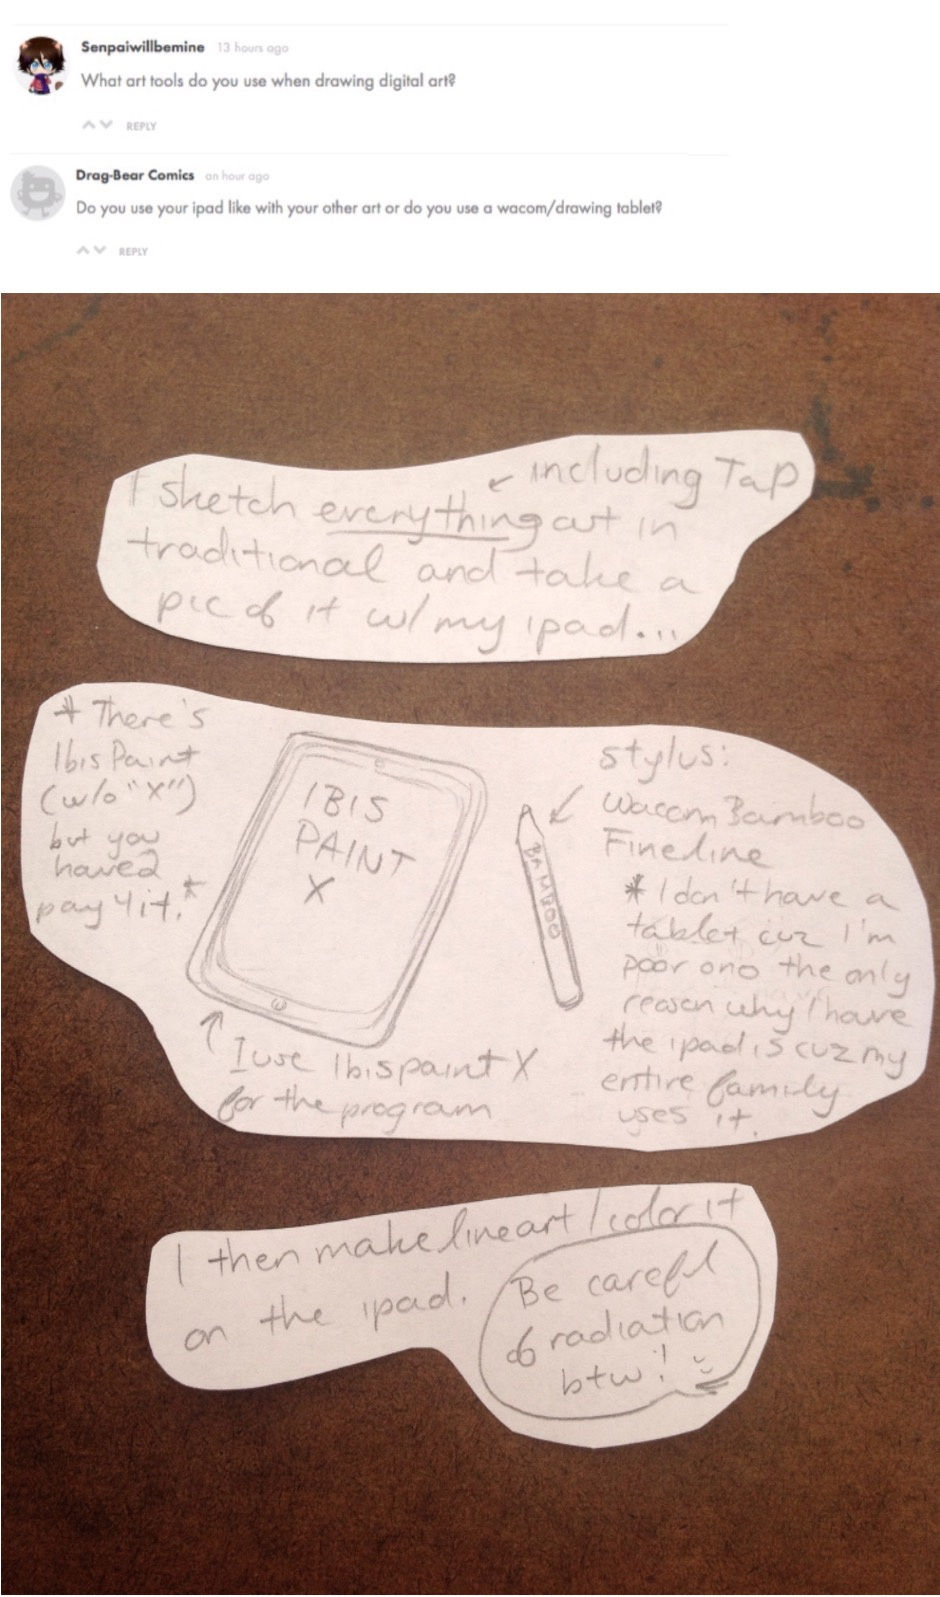 Senpaiwillbemine 13 hours ago
What art tools do you use when drawing digital art?
REPLY
Drag-Bear Comics an hour ago
Do you use your ipad like with your other art or do you use a wacom/drawing tablet?
REPLY
including TaP
I sketch everything out in
traditional and take a
pic of it w/ my ipad...
* There's
IbisPaint
(w/o "X")
but you
have2
pay 4 it.*
IBIS
PAINT
X
BAMBOO
I use Ibispaint X
for the program
stylus:
Wacom Bamboo
Fineline
* I don't have a
tablet cuz I'm
poor ono the only
reason why I have
the ipad is cuz my
entire family
uses it.
I then make lineart/color it
on the ipad.
Be careful
of radiation
btw!